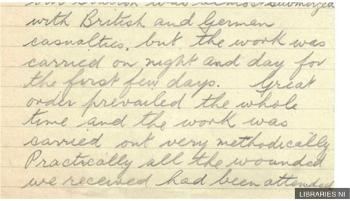 was almost submerged
with British and German
casualties, but the work was
carried on night and day for
the first few days. Great
order prevailed the whole
time and the work was
carried out very methodically
Practically all the wounded
we received had been attended
LIBRARIES NI